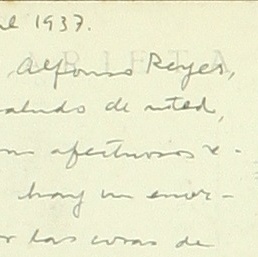 1937.
Alfonso Reyes,
saludo de usted,
afectuosos
hay un enor-
las cosas de